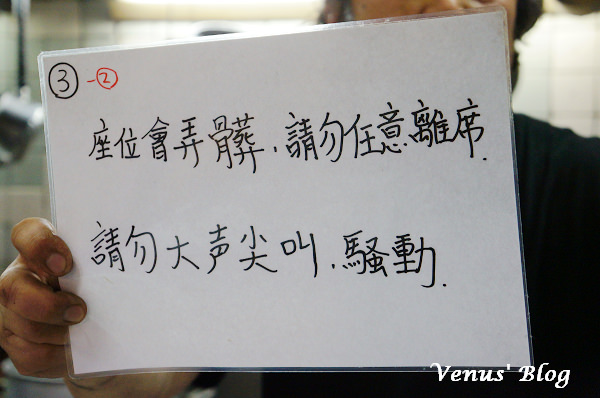 ③-②
座位會弄髒,請勿任意離席.
請勿大声尖叫,騷動.
Venus' Blog